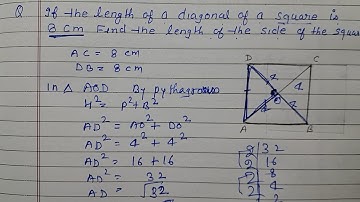 Q If the length of a diagonal of a square is
8 cm Find the length of the side of the squar
AC = 8 cm
DB = 8 cm
In △ AOD By pythagoras
H² = P² + B²
AD² = AO² + DO²
AD² = 4² + 4²
AD² = 16 + 16
AD² = 32
AD = √32
D C
4 4
O
4 4
A B
2 32
2 16
2 8
2 4
2